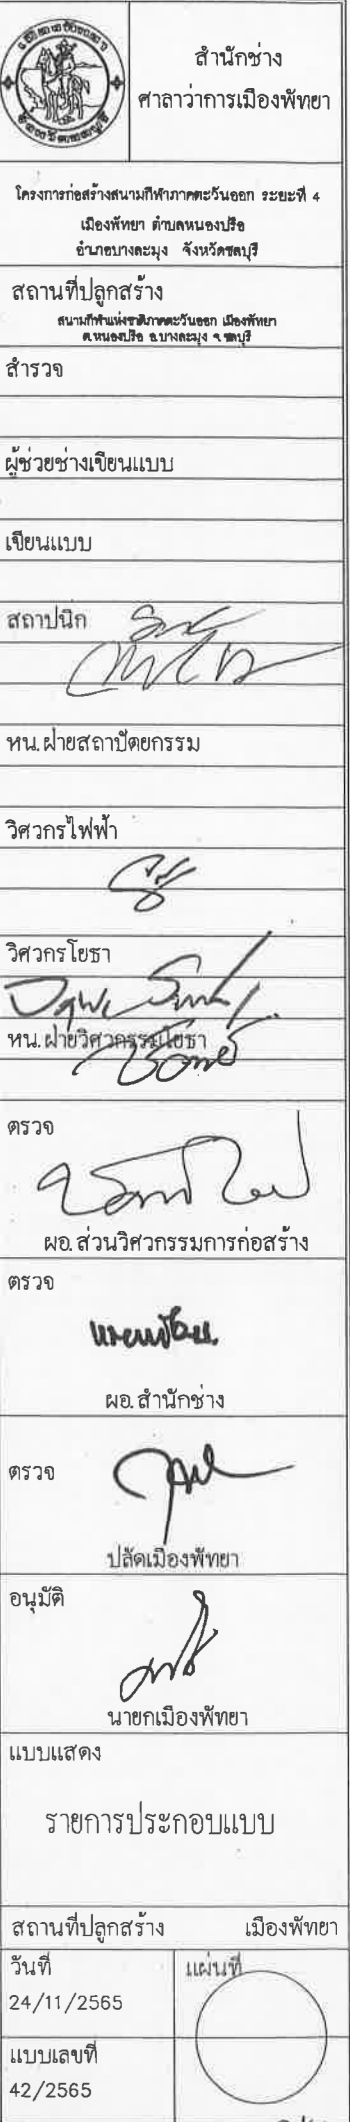 สำนักช่าง
ศาลาว่าการเมืองพัทยา
โครงการก่อสร้างสนามกีฬาภาคตะวันออก ระยะที่ 4
เมืองพัทยา ตำบลหนองปรือ
อำเภอบางละมุง จังหวัดชลบุรี
สถานที่ปลูกสร้าง
สนามกีฬาแห่งชาติภาคตะวันออก เมืองพัทยา
ต.หนองปรือ อ.บางละมุง จ.ชลบุรี
สำรวจ
ผู้ช่วยช่างเขียนแบบ
เขียนแบบ
สถาปนิก
หน.ฝ่ายสถาปัตยกรรม
วิศวกรไฟฟ้า
วิศวกรโยธา
หน.ฝ่ายวิศวกรรมโยธา
ตรวจ
ผอ.ส่วนวิศวกรรมการก่อสร้าง
ตรวจ
ผอ.สำนักช่าง
ตรวจ
ปลัดเมืองพัทยา
อนุมัติ
นายกเมืองพัทยา
แบบแสดง
รายการประกอบแบบ
สถานที่ปลูกสร้าง เมืองพัทยา
วันที่ แผ่นที่
24/11/2565
แบบเลขที่
42/2565